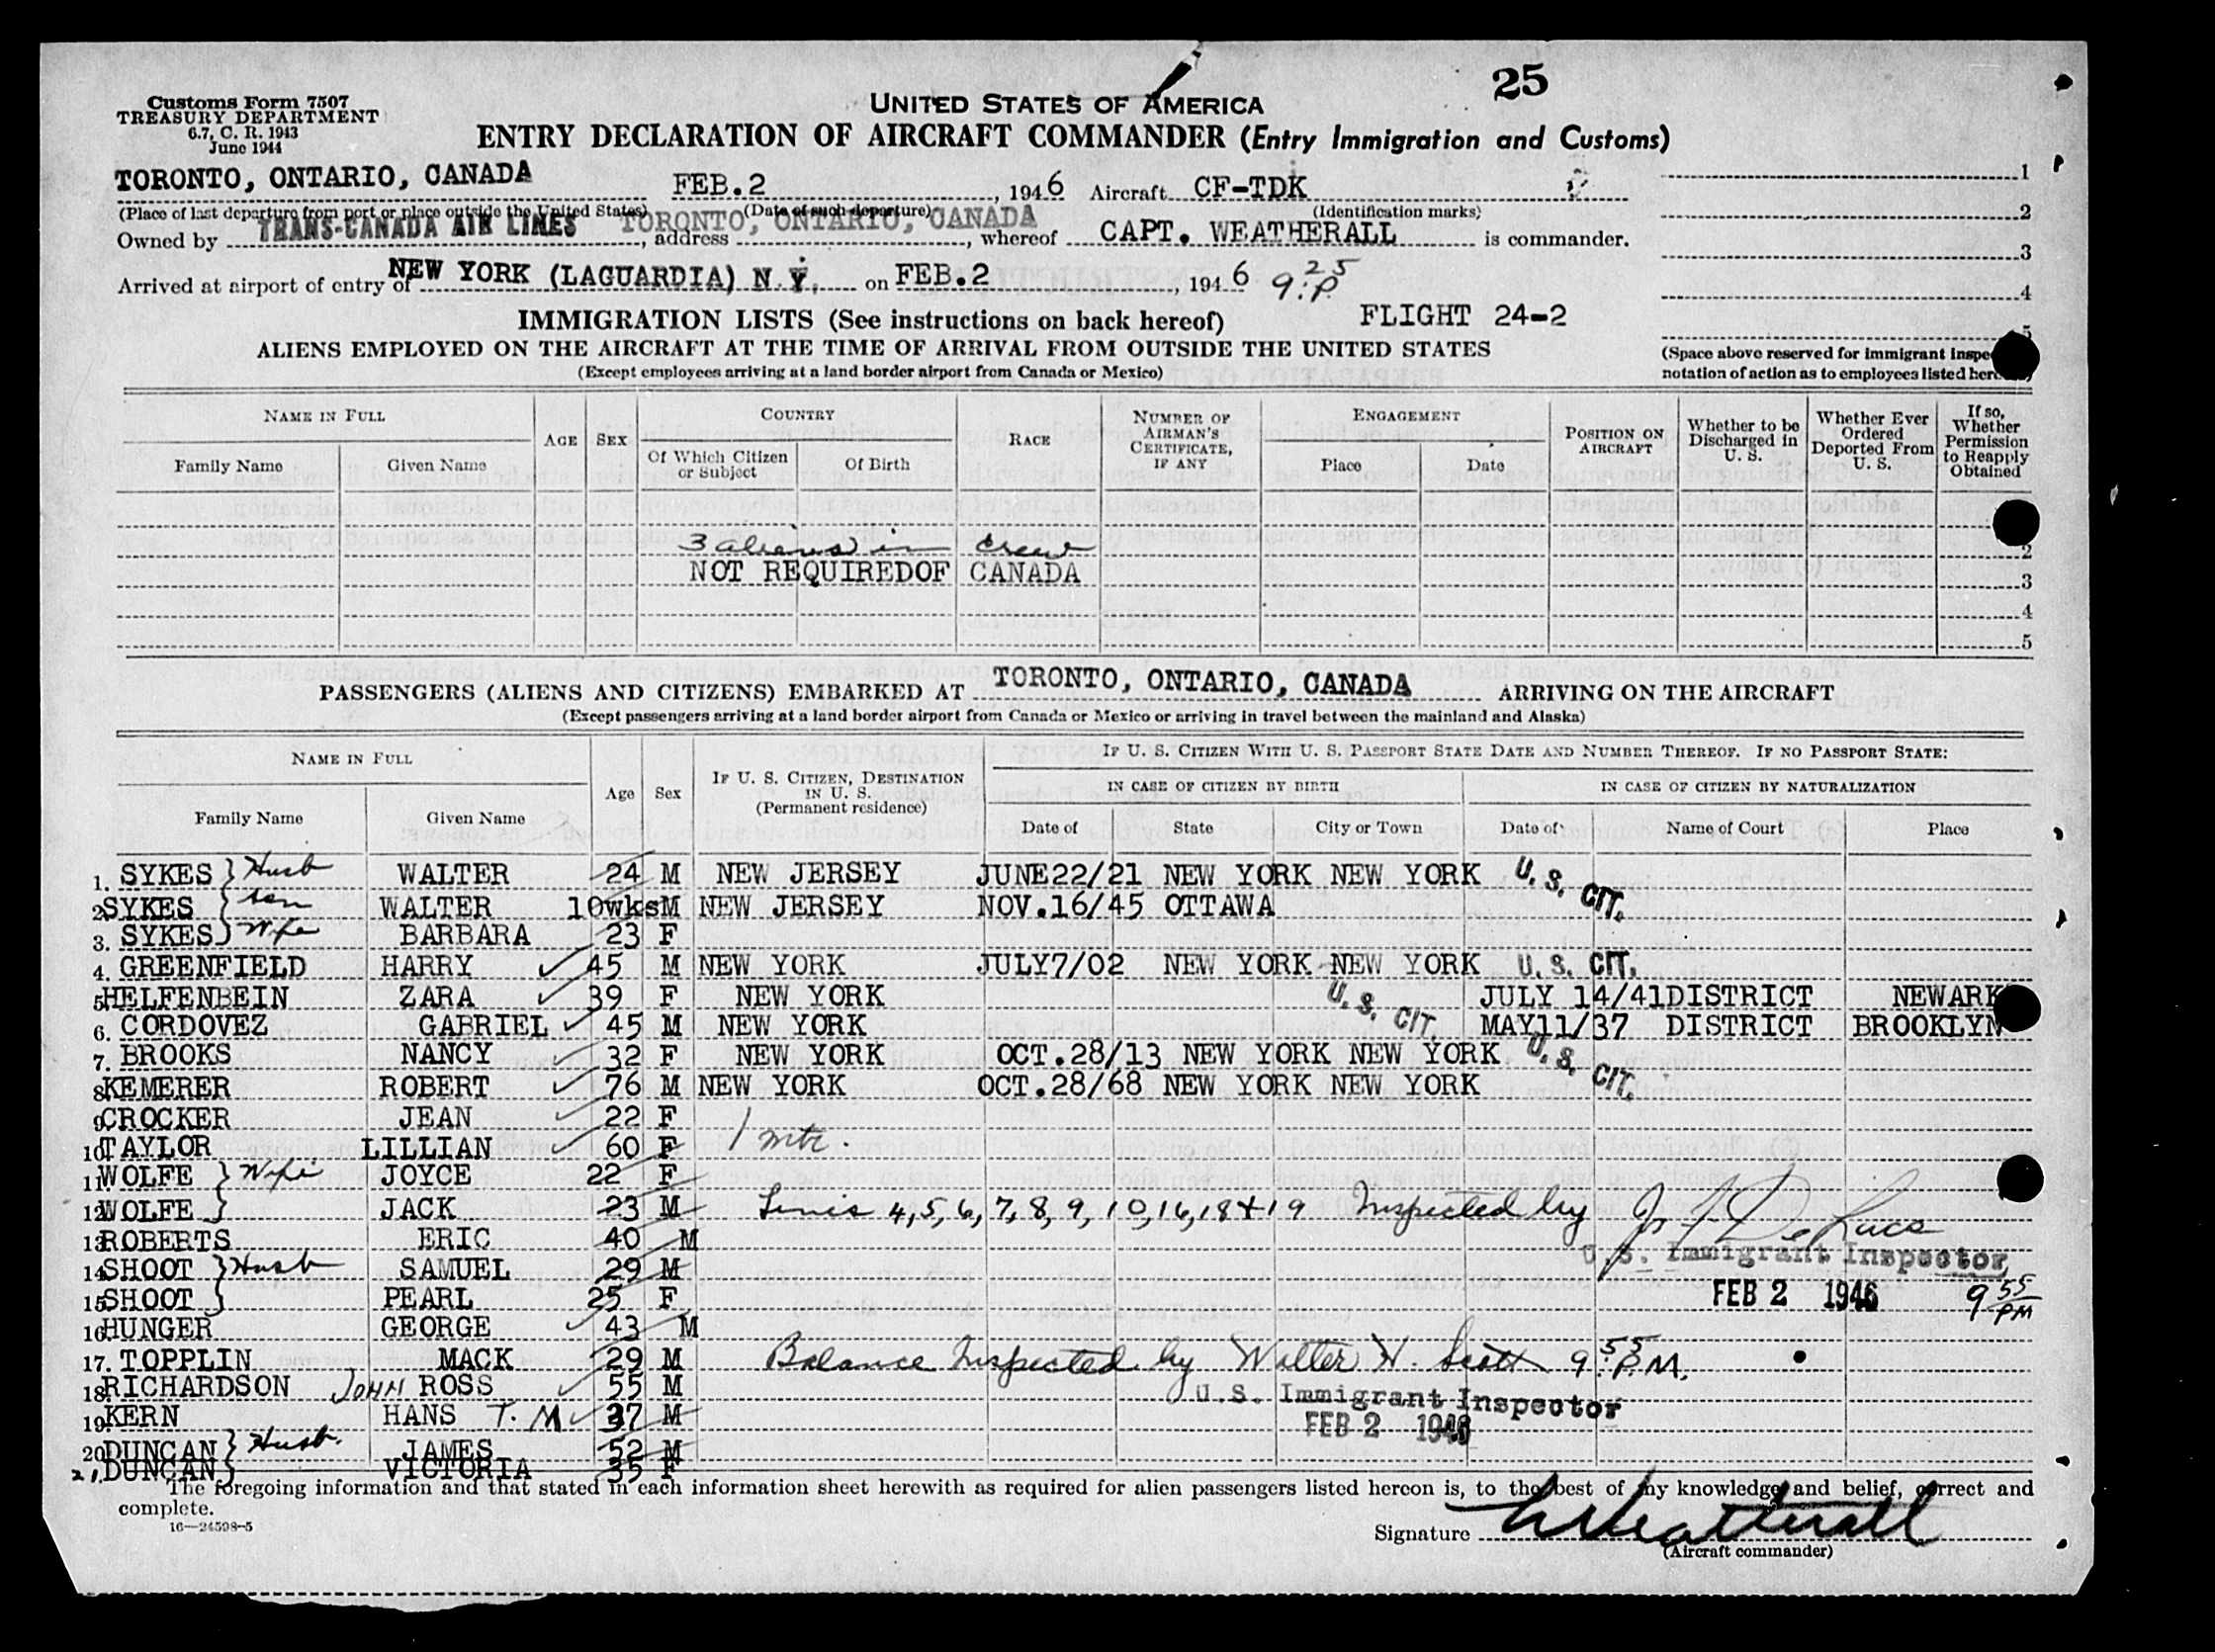 25
Customs Form 7507
TREASURY DEPARTMENT
6.7, C. R. 1943
June 1944
UNITED STATES OF AMERICA
ENTRY DECLARATION OF AIRCRAFT COMMANDER (Entry Immigration and Customs)
TORONTO, ONTARIO, CANADA FEB.2, 1946 Aircraft CF-TDK 1
(Place of last departure from port or place outside the United States) (Date of such departure) (Identification marks) 2
Owned by TRANS-CANADA AIR LINES, address TORONTO, ONTARIO, CANADA, whereof CAPT. WEATHERALL is commander. 3
Arrived at airport of entry of NEW YORK (LAGUARDIA) N.Y. on FEB.2, 1946 9:25 P 4
IMMIGRATION LISTS (See instructions on back hereof) FLIGHT 24-2 5
ALIENS EMPLOYED ON THE AIRCRAFT AT THE TIME OF ARRIVAL FROM OUTSIDE THE UNITED STATES
(Except employees arriving at a land border airport from Canada or Mexico)
(Space above reserved for immigrant
notation of action as to employees listed
NAME IN FULL AGE SEX COUNTRY RACE NUMBER OF AIRMAN'S CERTIFICATE, IF ANY ENGAGEMENT POSITION ON AIRCRAFT Whether to be Discharged in U. S. Whether Ever Ordered Deported From U. S. If so, Whether Permission to Reapply Obtained
Family Name Given Name Of Which Citizen or Subject Of Birth Place Date
3 aliens in crew 2
NOT REQUIREDOF CANADA 3
4
5
PASSENGERS (ALIENS AND CITIZENS) EMBARKED AT TORONTO, ONTARIO, CANADA ARRIVING ON THE AIRCRAFT
(Except passengers arriving at a land border airport from Canada or Mexico or arriving in travel between the mainland and Alaska)
NAME IN FULL Age Sex IF U. S. CITIZEN, DESTINATION IN U. S. (Permanent residence) IF U. S. CITIZEN WITH U. S. PASSPORT STATE DATE AND NUMBER THEREOF. IF NO PASSPORT STATE:
IN CASE OF CITIZEN BY BIRTH IN CASE OF CITIZEN BY NATURALIZATION
Family Name Given Name Date of State City or Town Date of Name of Court Place
1. SYKES Husb WALTER 24 M NEW JERSEY JUNE22/21 NEW YORK NEW YORK U. S. CIT.
2. SYKES son WALTER 10wksM NEW JERSEY NOV.16/45 OTTAWA
3. SYKES Wife BARBARA 23 F
4. GREENFIELD HARRY 45 M NEW YORK JULY7/02 NEW YORK NEW YORK U. S. CIT.
5. HELFENBEIN ZARA 39 F NEW YORK U. S. CIT. JULY 14/41 DISTRICT NEWARK
6. CORDOVEZ GABRIEL 45 M NEW YORK MAY11/37 DISTRICT BROOKLYN
7. BROOKS NANCY 32 F NEW YORK OCT.28/13 NEW YORK NEW YORK U. S. CIT.
8. KEMERER ROBERT 76 M NEW YORK OCT.28/68 NEW YORK NEW YORK
9. CROCKER JEAN 22 F
10. TAYLOR LILLIAN 60 F 1 mtr.
11. WOLFE Wife JOYCE 22 F
12. WOLFE JACK 23 M Lines 4, 5, 6, 7, 8, 9, 10, 16, 18 + 19 Inspected by
13. ROBERTS ERIC 40 M U. S. Immigrant Inspector
14. SHOOT Husb SAMUEL 29 M
15. SHOOT PEARL 25 F FEB 2 1946 9 55 PM
16. HUNGER GEORGE 43 M
17. TOPPLIN MACK 29 M Balance Inspected by Walter H. Scott 9:55 P.M.
18. RICHARDSON JOHN ROSS 55 M U.S. Immigrant Inspector
19. KERN HANS T. M 37 M FEB 2 1946
20. DUNCAN Husb. JAMES 52 M
21. DUNCAN VICTORIA 35 F
The foregoing information and that stated in each information sheet herewith as required for alien passengers listed hereon is, to the best of my knowledge and belief, correct and
complete.
16—24598-5
Signature Weatherall
(Aircraft commander)